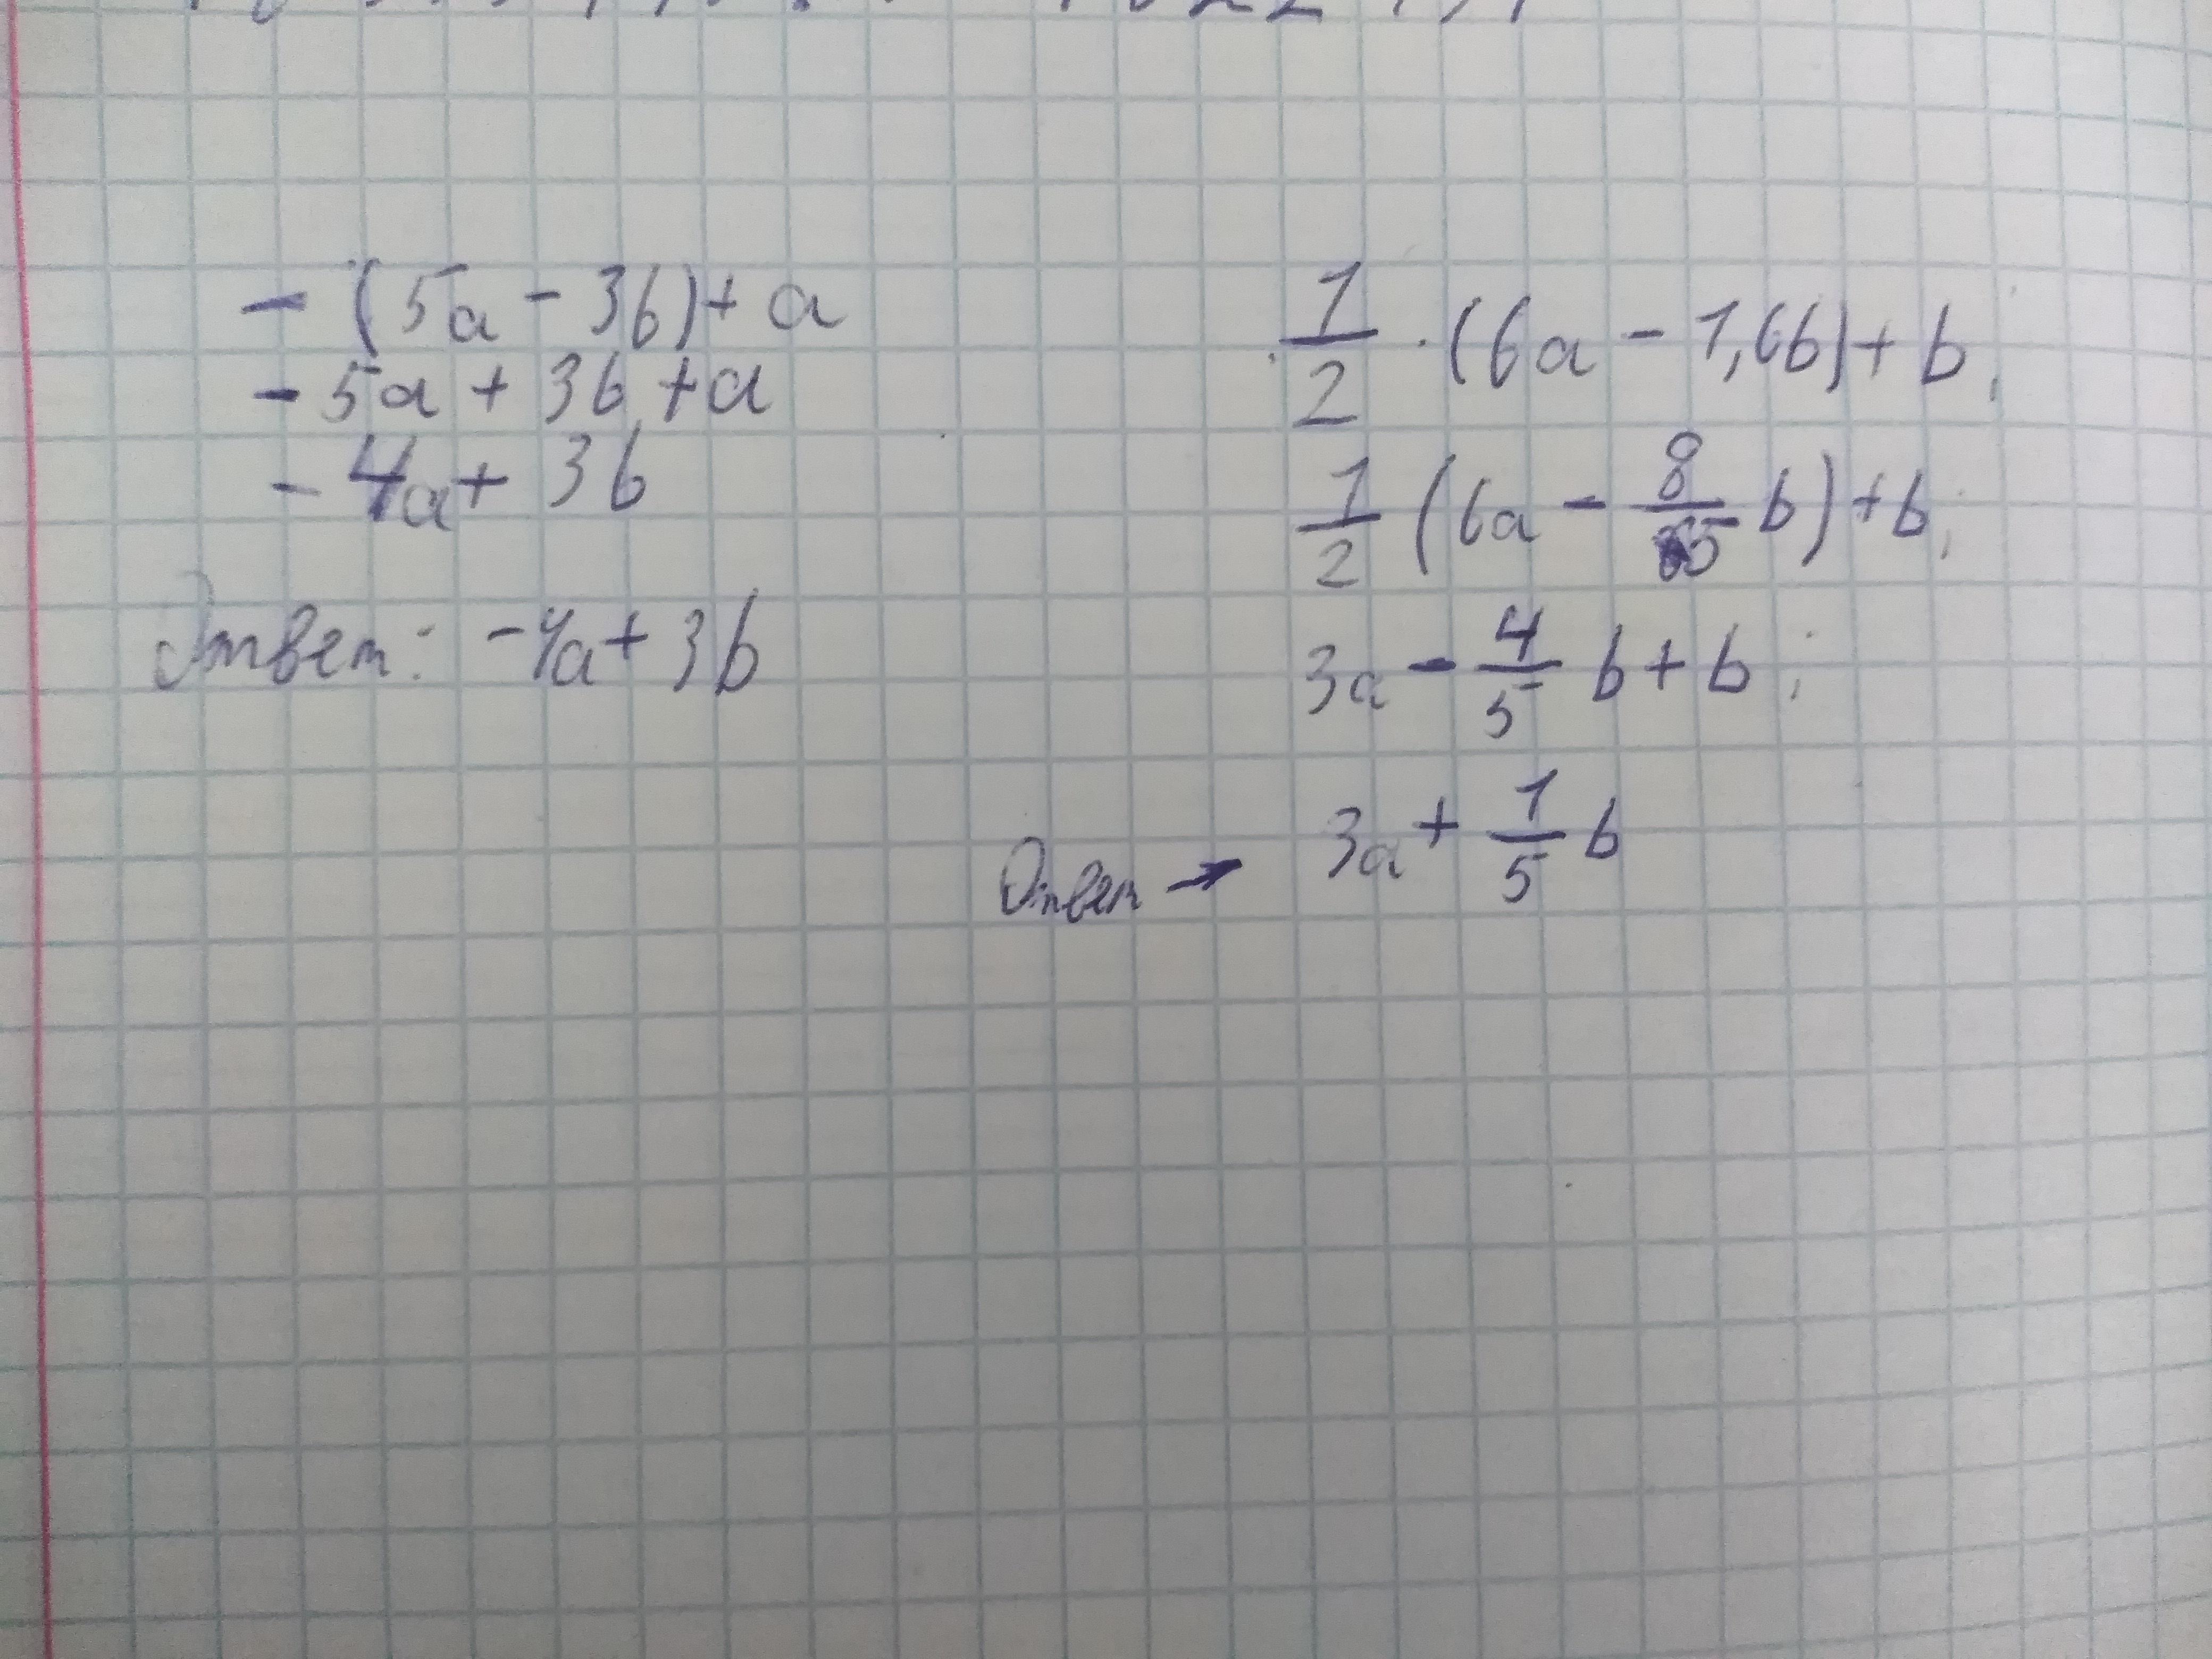 - (5a - 3b) + a
- 5a + 3b + a
- 4a + 3b
Ответ: -4a + 3b
1/2 · (6a - 1,6b) + b;
1/2 (6a - 8/5 b) + b;
3a - 4/5 b + b;
Ответ → 3a + 1/5 b